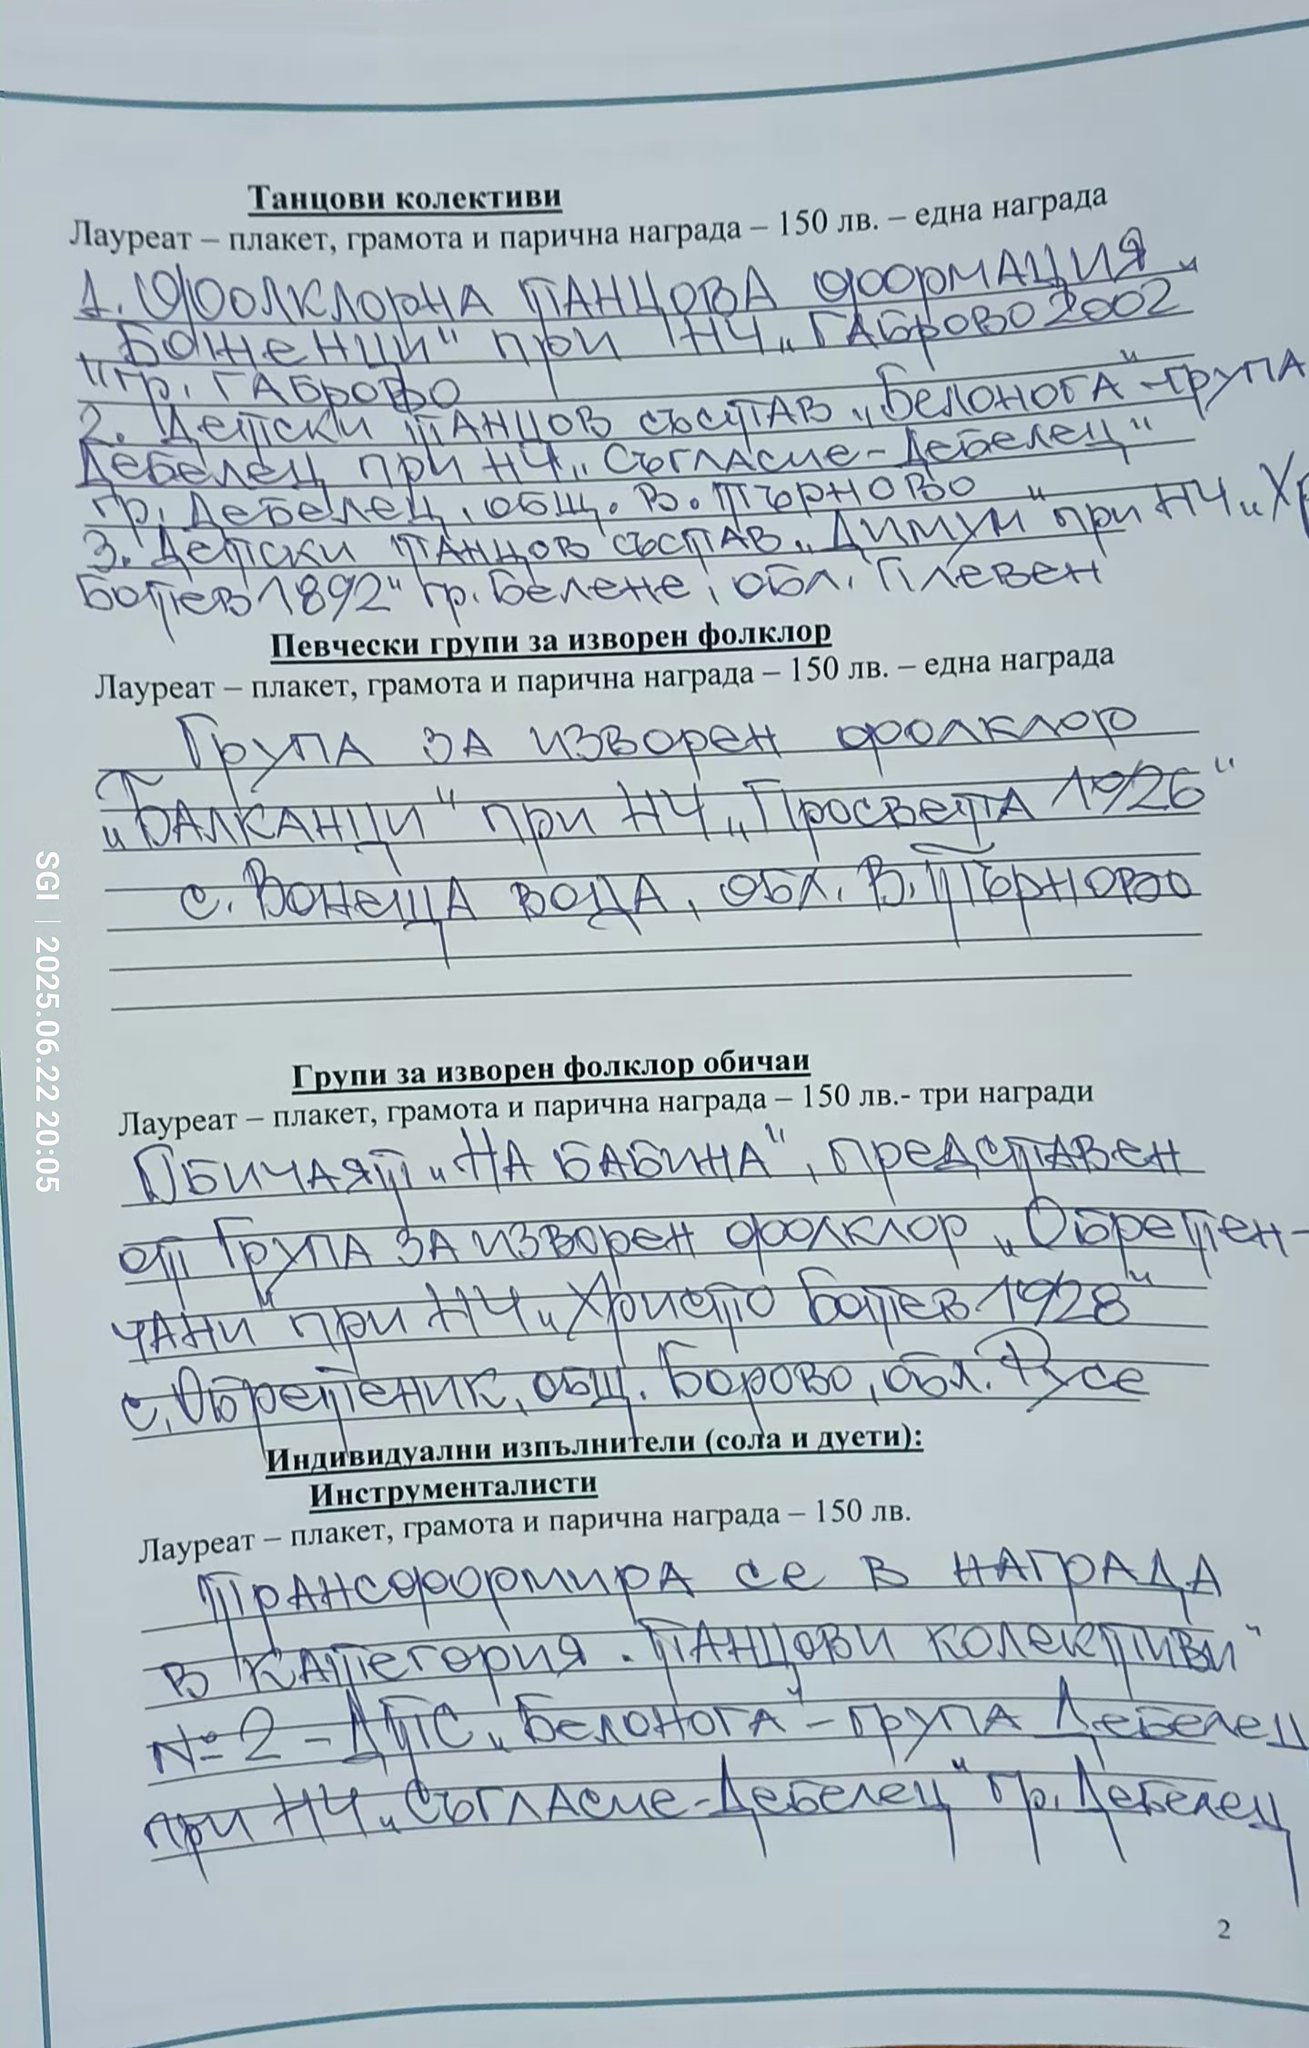 Танцови колективи
Лауреат – плакет, грамота и парична награда – 150 лв. – една награда
1. Фолклорна танцова формация
"Боженци" при НЧ "Габрово 2002"
гр. Габрово
2. Детски танцов състав "Белонога" - група
Дебелец при НЧ "Съгласие - Дебелец"
гр. Дебелец, общ. В. Търново
3. Детски танцов състав "Димум" при НЧ "Хр
Ботев 1892" гр. Белене, обл. Плевен
Певчески групи за изворен фолклор
Лауреат – плакет, грамота и парична награда – 150 лв. – една награда
Група за изворен фолклор
"Балканци" при НЧ "Просвета 1926"
с. Вонеща вода, обл. В. Търново
Групи за изворен фолклор обичаи
Лауреат – плакет, грамота и парична награда – 150 лв.- три награди
Обичаят "На Бабина", представен
от Група за изворен фолклор "Обретен-
чани" при НЧ "Христо Ботев 1928"
с. Обретеник, общ. Борово, обл. Русе
Индивидуални изпълнители (сола и дуети):
Инструменталисти
Лауреат – плакет, грамота и парична награда – 150 лв.
Трансформира се в награда
в категория "Танцови колективи"
№ 2 - ДТС "Белонога" - група Дебелец
при НЧ "Съгласие - Дебелец" гр. Дебелец
2
SGI | 2025.06.22 20:05